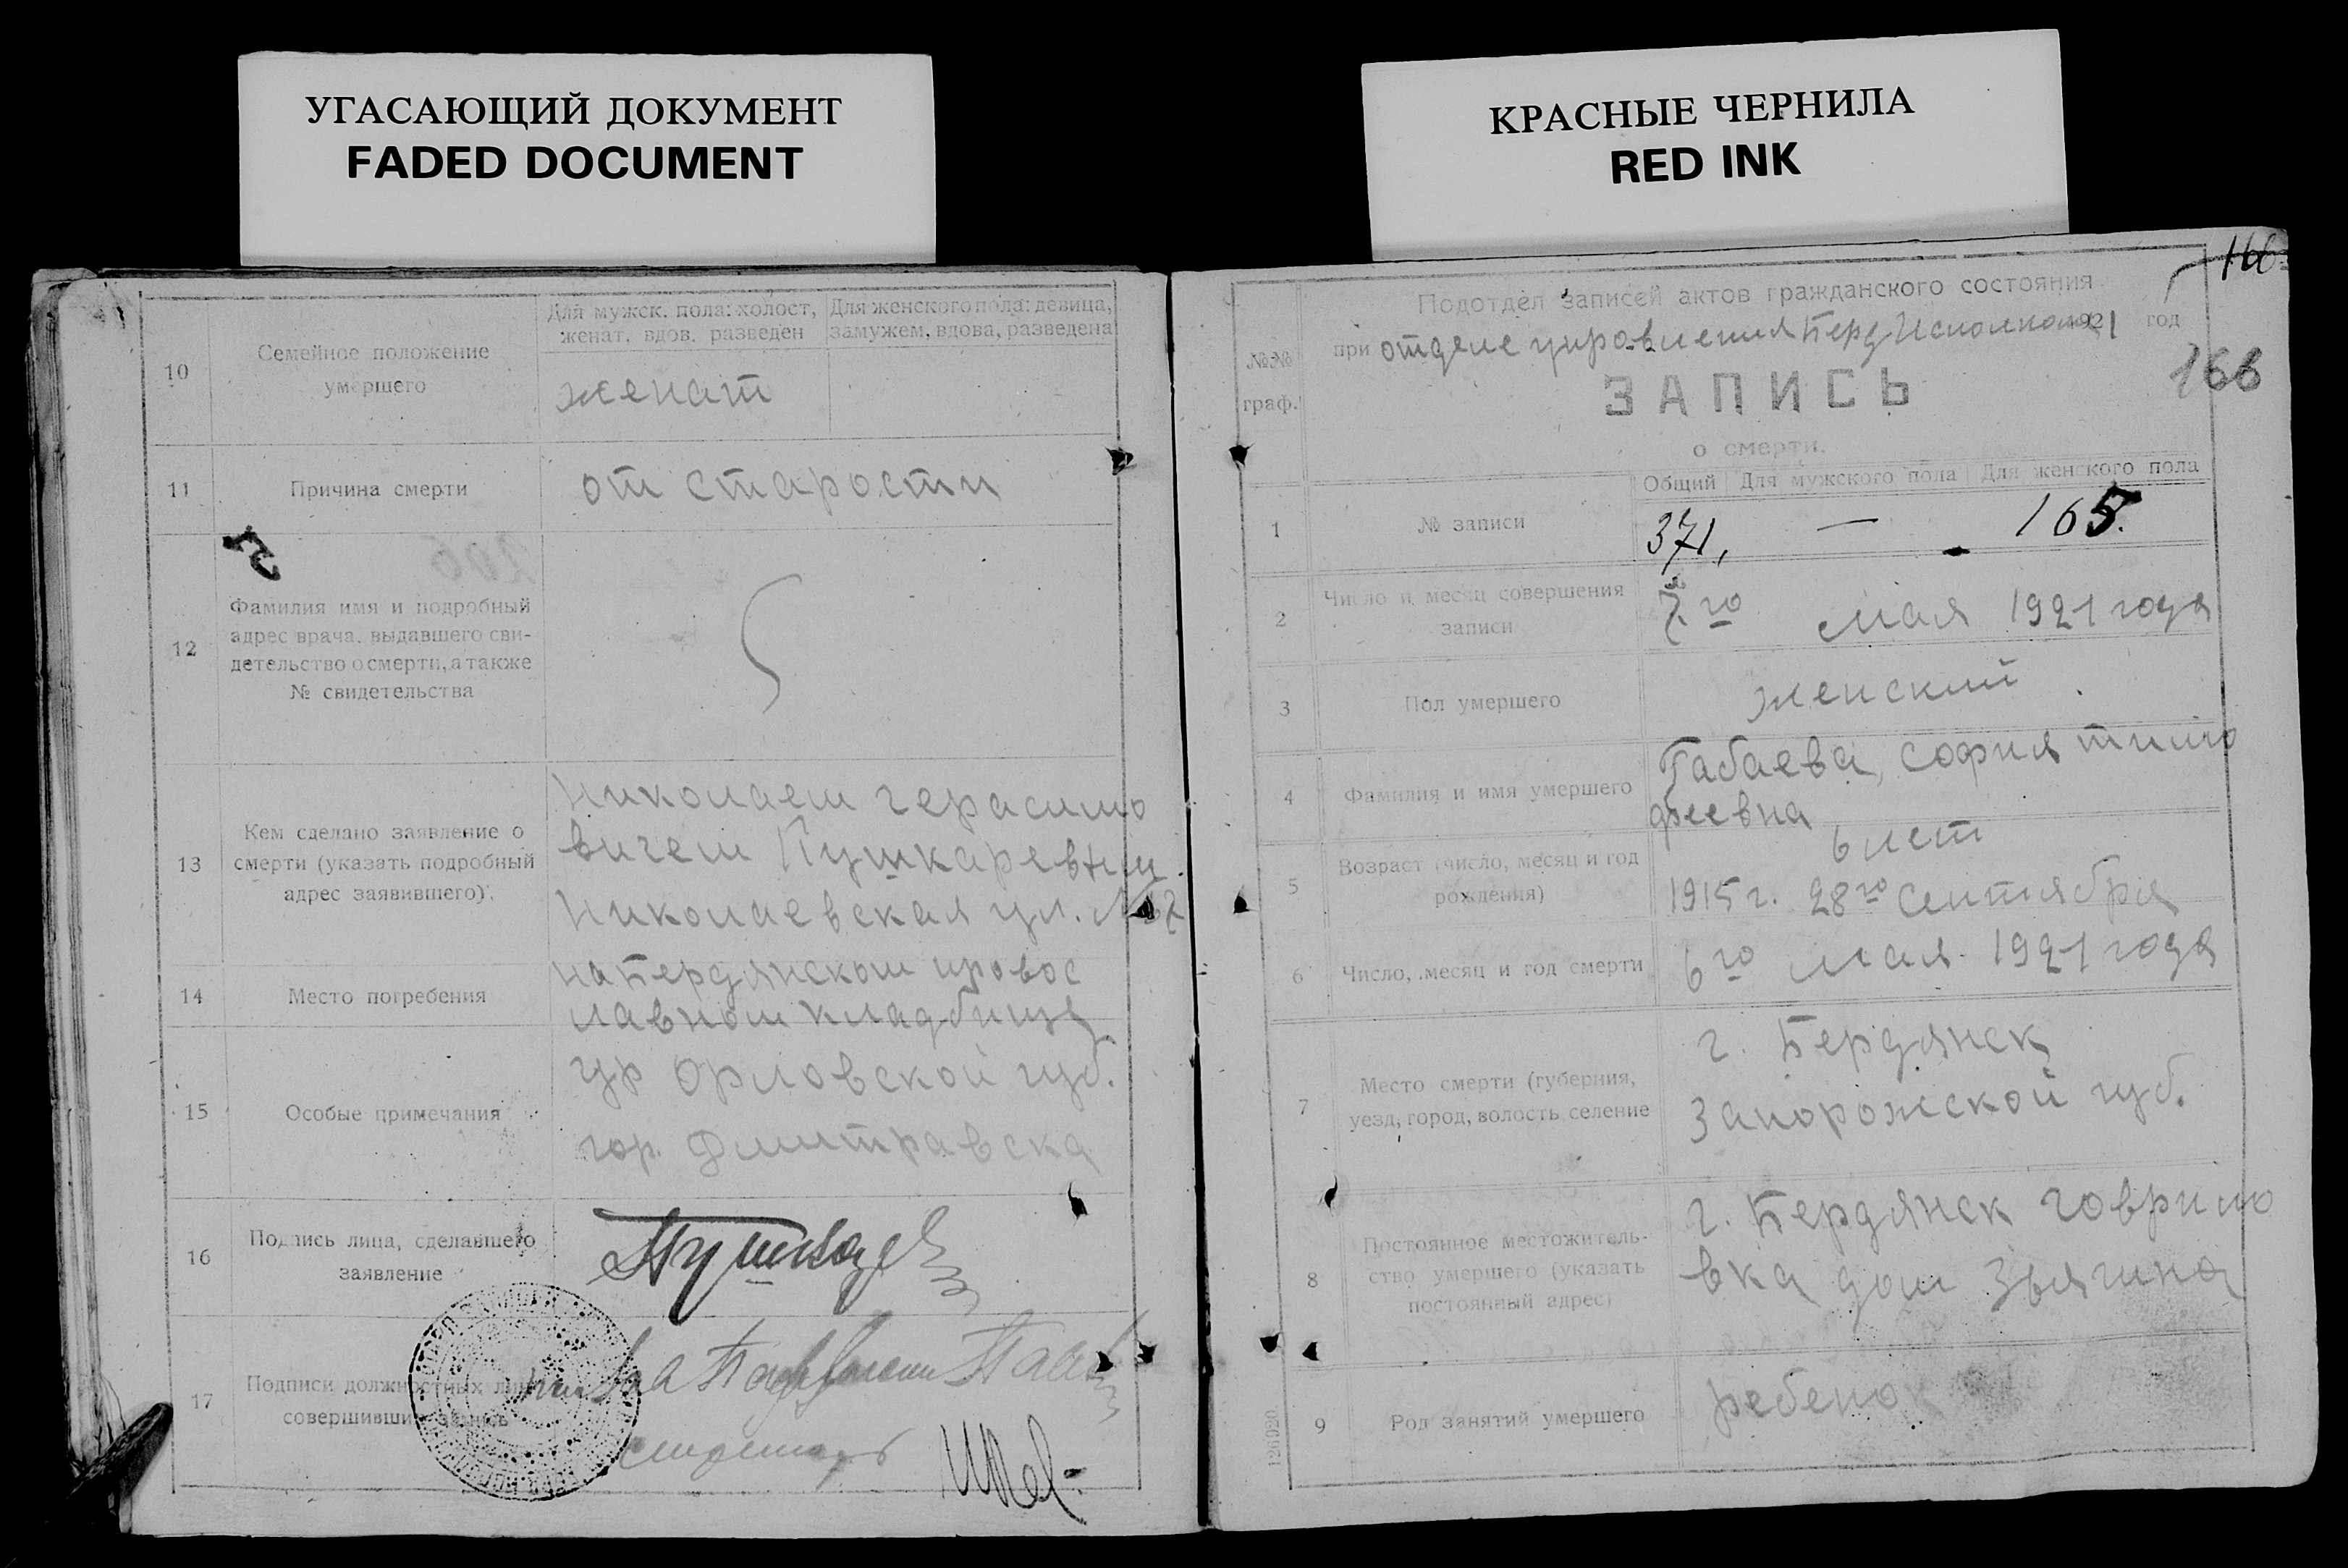 УГАСАЮЩИЙ ДОКУМЕНТ
FADED DOCUMENT
КРАСНЫЕ ЧЕРНИЛА
RED INK
10
Семейное положение
умершего
Для мужск. пола: холост,
женат, вдов, разведен
Для женского пола: девица,
замужем, вдова, разведена
женат
11
Причина смерти
от старости
12
Фамилия имя и подробный
адрес врача, выдавшего сви-
детельство о смерти, а также
№ свидетельства
13
Кем сделано заявление о
смерти (указать подробный
адрес заявившего).
Николаем герасимо
вичем Пушкаревым
Николаевская ул.
14
Место погребения
на Бердянском провос
лавном кладбище
15
Особые примечания
гр Орловской губ.
гор. Дмитравска
16
Подпись лица, сделавшего
заявление
17
Подписи должностных лиц
совершивших запись
166
№№
граф.
Подотдел записей актов гражданского состояния
при отделе управления Берд Исполкома 1921 год
166
ЗАПИСЬ
о смерти.
1
№ записи
Общий
Для мужского пола
Для женского пола
371, — 165.
2
Число и месяц совершения
записи
7го мая 1921 года
3
Пол умершего
женский
4
Фамилия и имя умершего
Габаева, София тимо
феевна
5
Возраст (число, месяц и год
рождения)
6 лет
1915 г. 28го Сентября
6
Число, месяц и год смерти
6го мая 1921 года
7
Место смерти (губерния,
уезд, город, волость, селение
г. Бердянск
Запорожской губ.
8
Постоянное местожитель-
ство умершего (указать
постоянный адрес)
г. Бердянск говрило
вка дом Звягина
9
Род занятий умершего
ребенок
126920